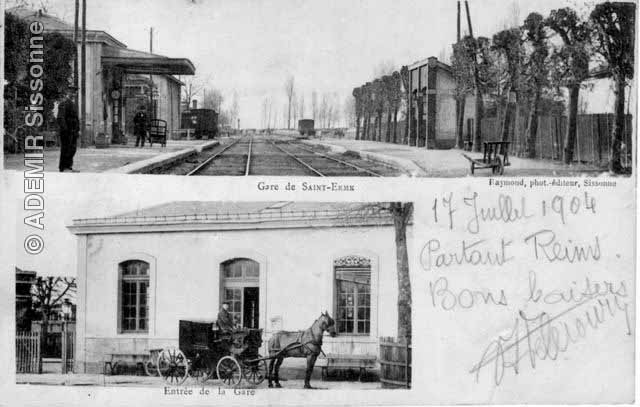 © ADEMIR Sissonne
Gare de SAINT-ERME
Raymond, phot.-éditeur, Sissonne
17 Juillet 1904
Partant Reims.
Bons baisers
Entrée de la Gare